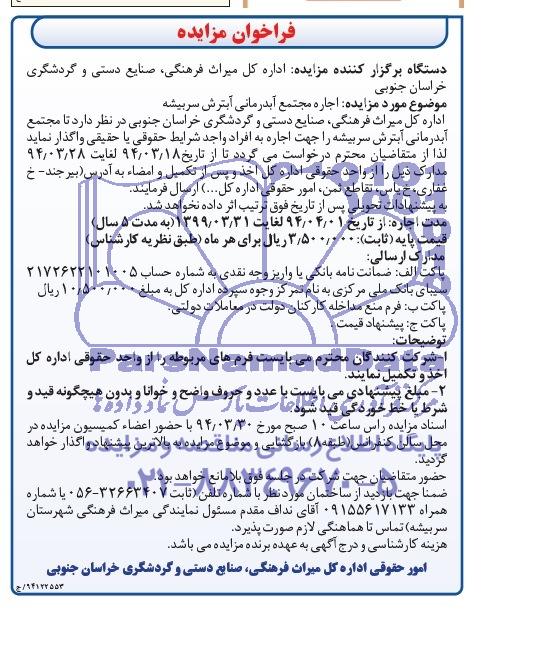 فراخوان مزایده
دستگاه برگزار کننده مزایده: اداره کل میراث فرهنگی، صنایع دستی و گردشگری
خراسان جنوبی
موضوع مورد مزایده: اجاره مجتمع آبدرمانی آبترش سربیشه
اداره کل میراث فرهنگی، صنایع دستی و گردشگری خراسان جنوبی در نظر دارد تا مجتمع
آبدرمانی آبترش سربیشه را جهت اجاره به افراد واجد شرایط حقوقی یا حقیقی واگذار نماید
لذا از متقاضیان محترم درخواست می گردد تا از تاریخ ۹۴/۰۳/۱۸ لغایت ۹۴/۰۳/۲۸
مدارک ذیل را از واحد حقوقی اداره کل اخذ و پس از تکمیل و امضاء به آدرس (بیرجند- خ
غفاری، خ یاس، تقاطع ثمن، امور حقوقی اداره کل...) ارسال فرمایند.
به پیشنهادات تحویلی پس از تاریخ فوق ترتیب اثر داده نخواهد شد.
مدت اجاره: از تاریخ ۹۴/۰۴/۰۱ لغایت ۱۳۹۹/۰۳/۳۱ (به مدت ۵ سال)
قیمت پایه (ثابت): ۳/۵۰۰/۰۰۰ ریال برای هر ماه (طبق نظریه کارشناس)
مدارک ارسالی:
پاکت الف: ضمانت نامه بانکی یا واریز وجه نقدی به شماره حساب ۲۱۷۲۶۲۲۱۰۱۰۰۵
سیبای بانک ملی مرکزی به نام تمرکز وجوه سپرده اداره کل به مبلغ ۱۰/۵۰۰/۰۰۰ ریال
پاکت ب: فرم منع مداخله کارکنان دولت در معاملات دولتی.
پاکت ج: پیشنهاد قیمت.
توضیحات:
۱-شرکت کنندگان محترم می بایست فرم های مربوطه را از واحد حقوقی اداره کل
اخذ و تکمیل نمایند.
۲- مبلغ پیشنهادی می بایست با عدد و حروف واضح و خوانا و بدون هیچگونه قید و
شرط یا خط خوردگی قید شود.
اسناد مزایده راس ساعت ۱۰ صبح مورخ ۹۴/۰۳/۳۰ با حضور اعضاء کمیسیون مزایده در
محل سالن کنفرانس (طبقه ۸) بازگشایی و موضوع مزایده به بالاترین پیشنهاد واگذار خواهد
گردید.
حضور متقاضیان جهت شرکت در جلسه فوق بلامانع خواهد بود.
ضمنا جهت بازدید از ساختمان مورد نظر با شماره تلفن (ثابت ۳۲۶۶۳۴۰۷-۰۵۶ یا شماره
همراه ۰۹۱۵۵۶۱۷۱۳۳ آقای نداف مقدم مسئول نمایندگی میراث فرهنگی شهرستان
سربیشه) تماس تا هماهنگی لازم صورت پذیرد.
هزینه کارشناسی و درج آگهی به عهده برنده مزایده می باشد.
امور حقوقی اداره کل میراث فرهنگی، صنایع دستی و گردشگری خراسان جنوبی
۹۴۱۲۲۵۵۳/ج
ParsNamadData
پایگاه اطلاع رسانی مناقصه و مزایده
۰۲۱-۸۸۳۴۹۶۷۰-۵